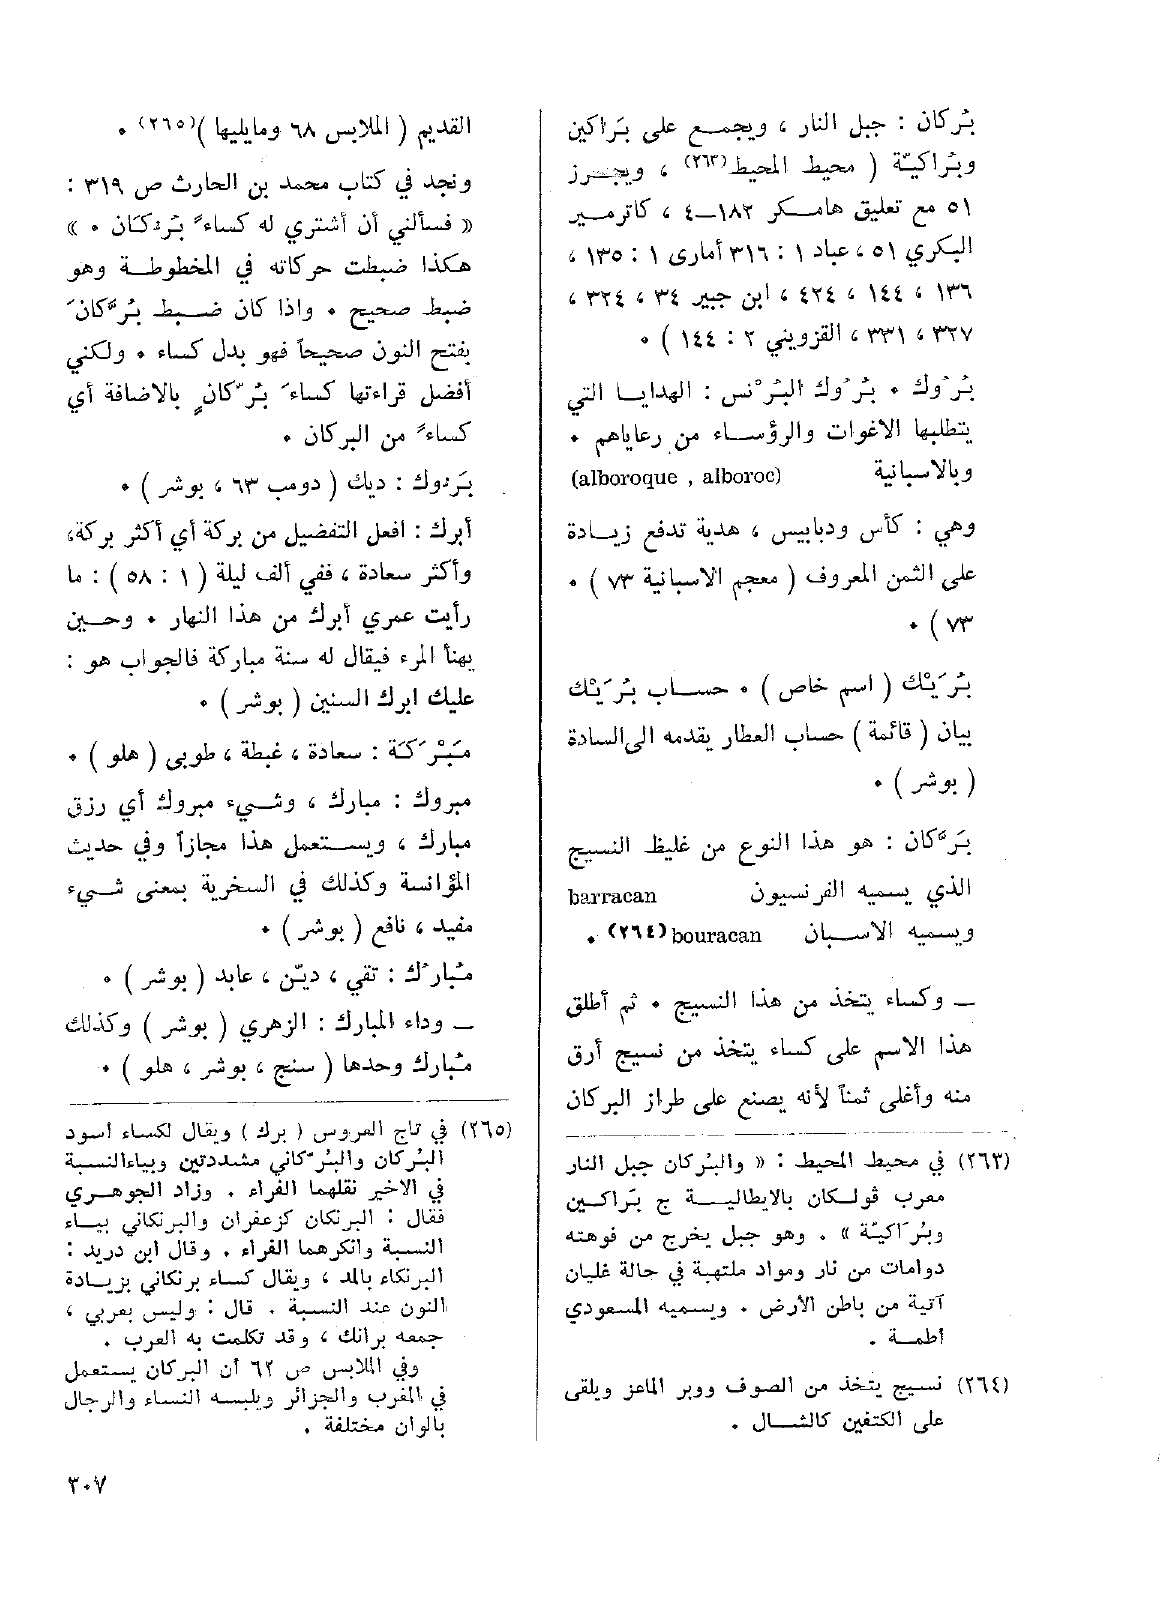 بُركان : جبل النار ، ويجمع على بَراكين
وبُراكيّة ( محيط المحيط(٢٦٣) ، ويجرز
٥١ مع تعليق هامكر ١٨٢–٤ ، كاترمير
البكري ٥١ ، عباد ١ : ٣١٦ أمارى ١ : ١٣٥ ،
١٣٦ ، ١٤٤ ، ٤٢٤ ، ابن جبير ٣٤ ، ٣٢٤ ،
٣٢٧ ، ٣٣١ ، القزويني ٢ : ١٤٤ ) ٠
بُرُوك ٠ بُرُوك البُرْنس : الهدايا التي
يتطلبها الاغوات والرؤساء من رعاياهم ٠
وبالاسبانية (alboroque , alboroc)
وهي : كأس ودبابيس ، هدية تدفع زيادة
على الثمن المعروف ( معجم الاسبانية ٧٣ ) ٠
٧٣ ) ٠
بُرَيْك ( اسم خاص ) ٠ حساب بُرَيْك
بيان ( قائمة ) حساب العطار يقدمه الى السادة
( بوشر ) ٠
بَرَّكان : هو هذا النوع من غليظ النسيج
الذي يسميه الفرنسيون barracan
ويسميه الاسبان bouracan (٢٦٤) ٠
— وكساء يتخذ من هذا النسيج ٠ ثم أطلق
هذا الاسم على كساء يتخذ من نسيج أرق
منه وأغلى ثمناً لأنه يصنع على طراز البركان
(٢٦٣) في محيط المحيط : « والبُركان جبل النار
معرب ڤولكان بالايطالية ج بَراكين
وبُراكيّة » . وهو جبل يخرج من فوهته
دوامات من نار ومواد ملتهبة في حالة غليان
آتية من باطن الأرض . ويسميه المسعودي
أطمة .
(٢٦٤) نسيج يتخذ من الصوف ووبر الماعز ويلقى
على الكتفين كالشال .
القديم ( الملابس ٦٨ ومايليها )(٢٦٥) ٠
ونجد في كتاب محمد بن الحارث ص ٣١٩ :
« فسألني أن أشتري له كساءً بَرَّكان ٠ »
هكذا ضبطت حركاته في المخطوطة وهو
ضبط صحيح ٠ واذا كان ضبط بُرَّكانَ
بفتح النون صحيحاً فهو بدل كساء ٠ ولكني
أفضل قراءتها كساءَ بُرّكانٍ بالاضافة أي
كساءً من البركان ٠
بَرّوك : ديك ( دومب ٦٣ ، بوشر ) ٠
أبرك : افعل التفضيل من بركة أي أكثر بركة،
وأكثر سعادة ، ففي ألف ليلة ( ١ : ٥٨ ) : ما
رأيت عمري أبرك من هذا النهار ٠ وحين
يهنأ المرء فيقال له سنة مباركة فالجواب هو :
عليك ابرك السنين ( بوشر ) ٠
مَبْرَكَة : سعادة ، غبطة ، طوبى ( هلو ) ٠
مبروك : مبارك ، وشيء مبروك أي رزق
مبارك ، ويستعمل هذا مجازاً وفي حديث
المؤانسة وكذلك في السخرية بمعنى شيء
مفيد ، نافع ( بوشر ) ٠
مُبارَك : تقي ، ديّن ، عابد ( بوشر ) ٠
— وداء المبارك : الزهري ( بوشر ) وكذلك
مُبارك وحدها ( سنج ، بوشر ، هلو ) ٠
(٢٦٥) في تاج العروس ( برك ) ويقال لكساء اسود
البَرّكان والبَرَّكاني مشددتين وبياء النسبة
في الاخير نقلهما الفراء . وزاد الجوهري
فقال : البرنكان كزعفران والبرنكاني بياء
النسبة وانكرهما الفراء . وقال ابن دريد :
البرنكاء بالمد ، ويقال كساء برنكاني بزيادة
النون عند النسبة . قال : وليس بعربي ،
جمعه برانك ، وقد تكلمت به العرب .
وفي الملابس ص ٦٢ أن البركان يستعمل
في المغرب والجزائر ويلبسه النساء والرجال
بألوان مختلفة .
٣٠٧